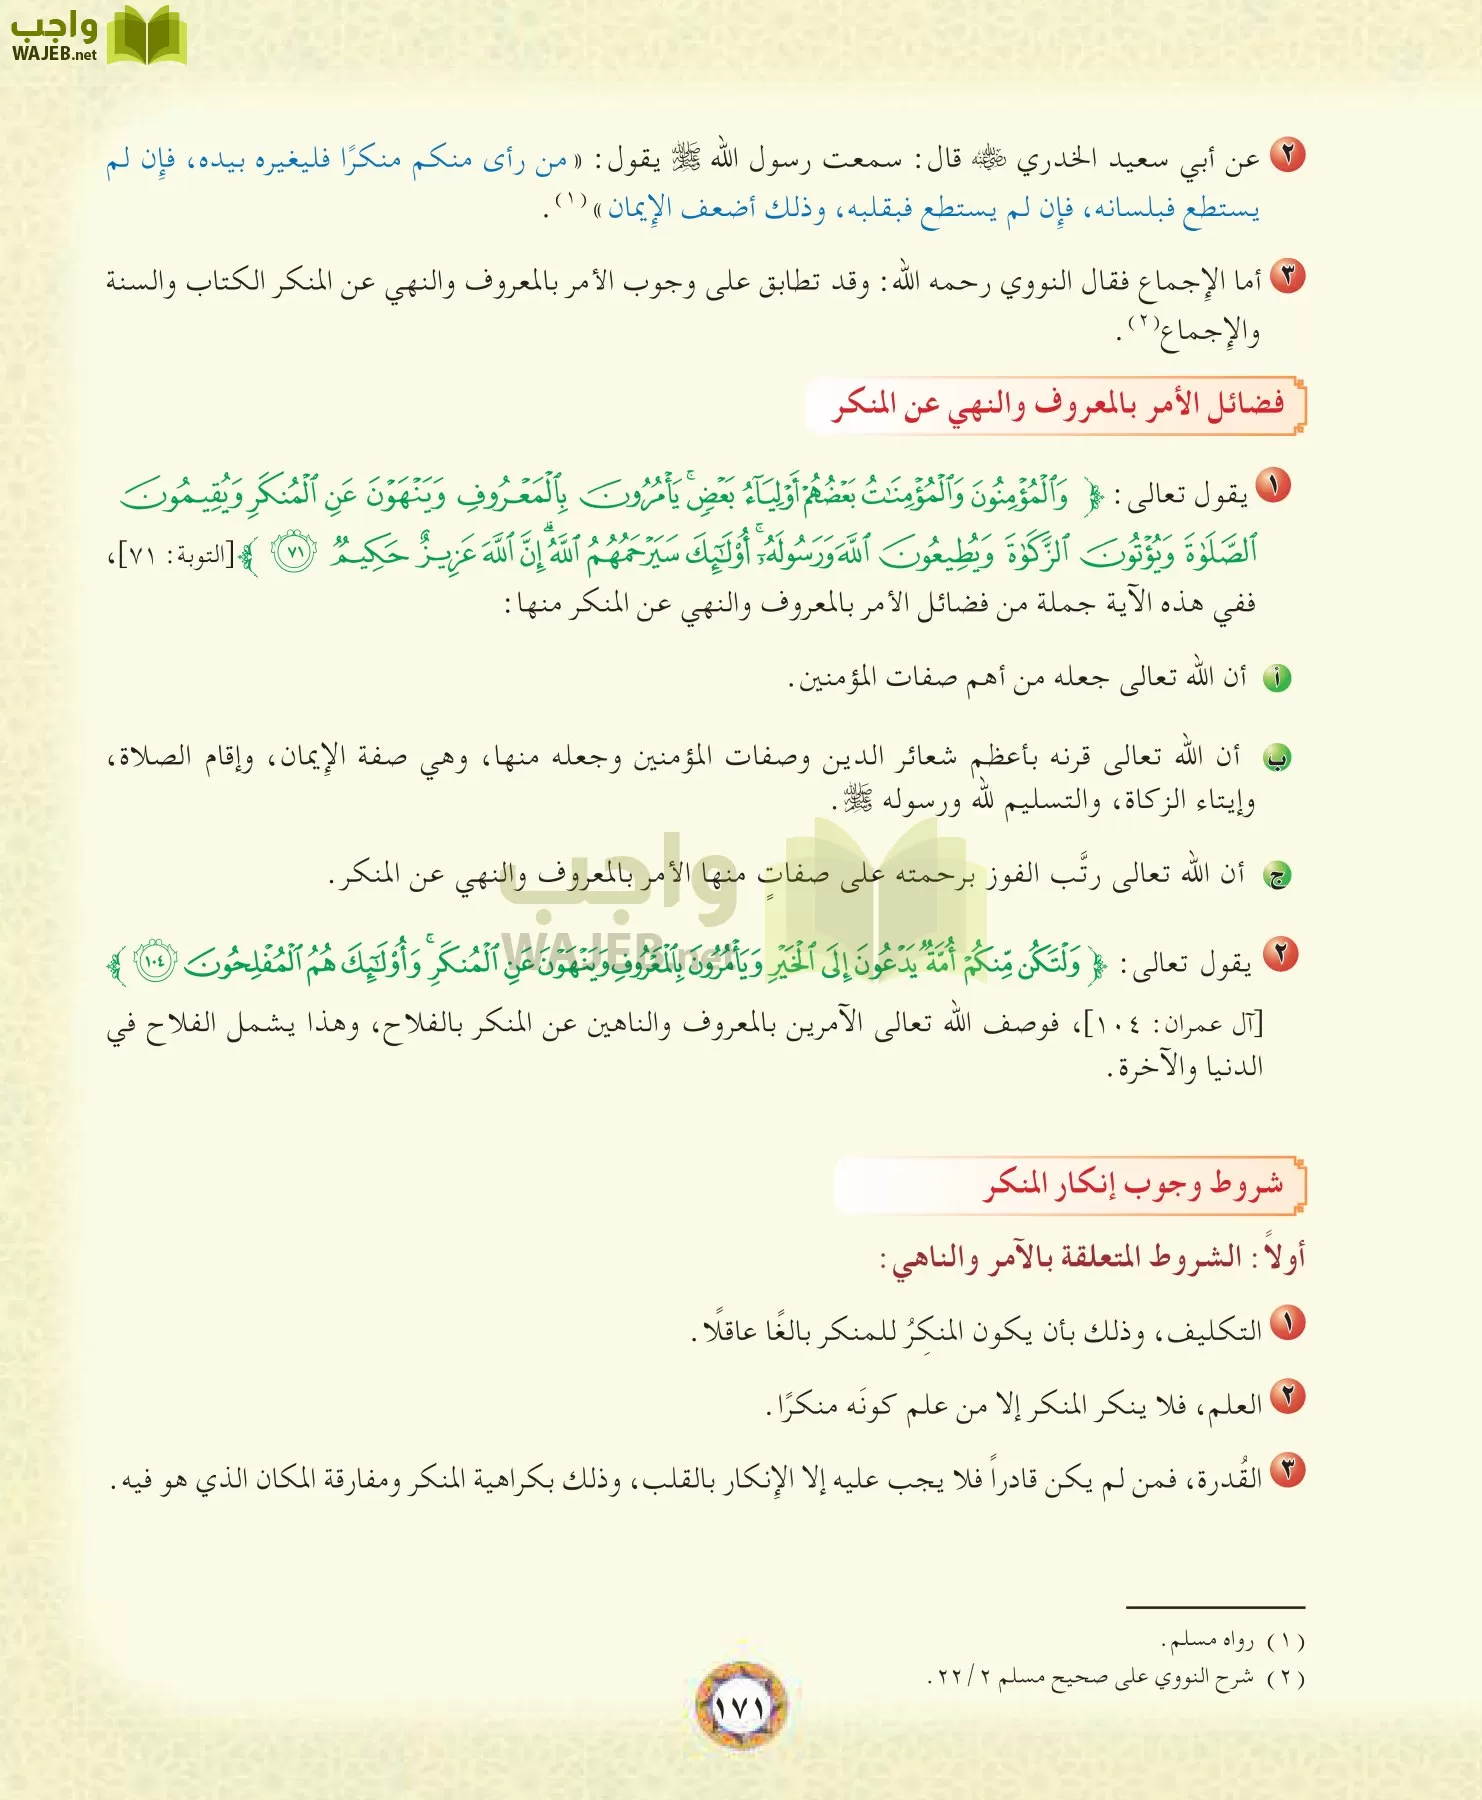 واجب
WAJEB.net
٢ عن أبي سعيد الخدري رضي الله عنه قال: سمعت رسول الله ﷺ يقول: «من رأى منكم منكرًا فليغيره بيده، فإن لم
يستطع فبلسانه، فإن لم يستطع فبقلبه، وذلك أضعف الإيمان»(١).
٣ أما الإجماع فقال النووي رحمه الله: وقد تطابق على وجوب الأمر بالمعروف والنهي عن المنكر الكتاب والسنة
والإجماع(٢).
فضائل الأمر بالمعروف والنهي عن المنكر
١ يقول تعالى: ﴿وَٱلْمُؤْمِنُونَ وَٱلْمُؤْمِنَٰتُ بَعْضُهُمْ أَوْلِيَآءُ بَعْضٍۚ يَأْمُرُونَ بِٱلْمَعْرُوفِ وَيَنْهَوْنَ عَنِ ٱلْمُنكَرِ وَيُقِيمُونَ
ٱلصَّلَوٰةَ وَيُؤْتُونَ ٱلزَّكَوٰةَ وَيُطِيعُونَ ٱللَّهَ وَرَسُولَهُۥٓۚ أُوْلَٰٓئِكَ سَيَرْحَمُهُمُ ٱللَّهُۗ إِنَّ ٱللَّهَ عَزِيزٌ حَكِيمٌ ٧١﴾ [التوبة: ٧١]،
ففي هذه الآية جملة من فضائل الأمر بالمعروف والنهي عن المنكر منها:
أ أن الله تعالى جعله من أهم صفات المؤمنين.
ب أن الله تعالى قرنه بأعظم شعائر الدين وصفات المؤمنين وجعله منها، وهي صفة الإيمان، وإقام الصلاة،
وإيتاء الزكاة، والتسليم لله ورسوله ﷺ.
ج أن الله تعالى رتَّب الفوز برحمته على صفاتٍ منها الأمر بالمعروف والنهي عن المنكر.
واجب
WAJEB.net
٢ يقول تعالى: ﴿وَلْتَكُن مِّنكُمْ أُمَّةٌ يَدْعُونَ إِلَى ٱلْخَيْرِ وَيَأْمُرُونَ بِٱلْمَعْرُوفِ وَيَنْهَوْنَ عَنِ ٱلْمُنكَرِۚ وَأُوْلَٰٓئِكَ هُمُ ٱلْمُفْلِحُونَ ١٠٤﴾
[آل عمران: ١٠٤]، فوصف الله تعالى الآمرين بالمعروف والناهين عن المنكر بالفلاح، وهذا يشمل الفلاح في
الدنيا والآخرة.
شروط وجوب إنكار المنكر
أولاً: الشروط المتعلقة بالآمر والناهي:
١ التكليف، وذلك بأن يكون المنكِرُ للمنكر بالغًا عاقلًا.
٢ العلم، فلا ينكر المنكر إلا من علم كونَه منكرًا.
٣ القُدرة، فمن لم يكن قادراً فلا يجب عليه إلا الإنكار بالقلب، وذلك بكراهية المنكر ومفارقة المكان الذي هو فيه.
(١) رواه مسلم.
(٢) شرح النووي على صحيح مسلم ٢/ ٢٢.
١٧١